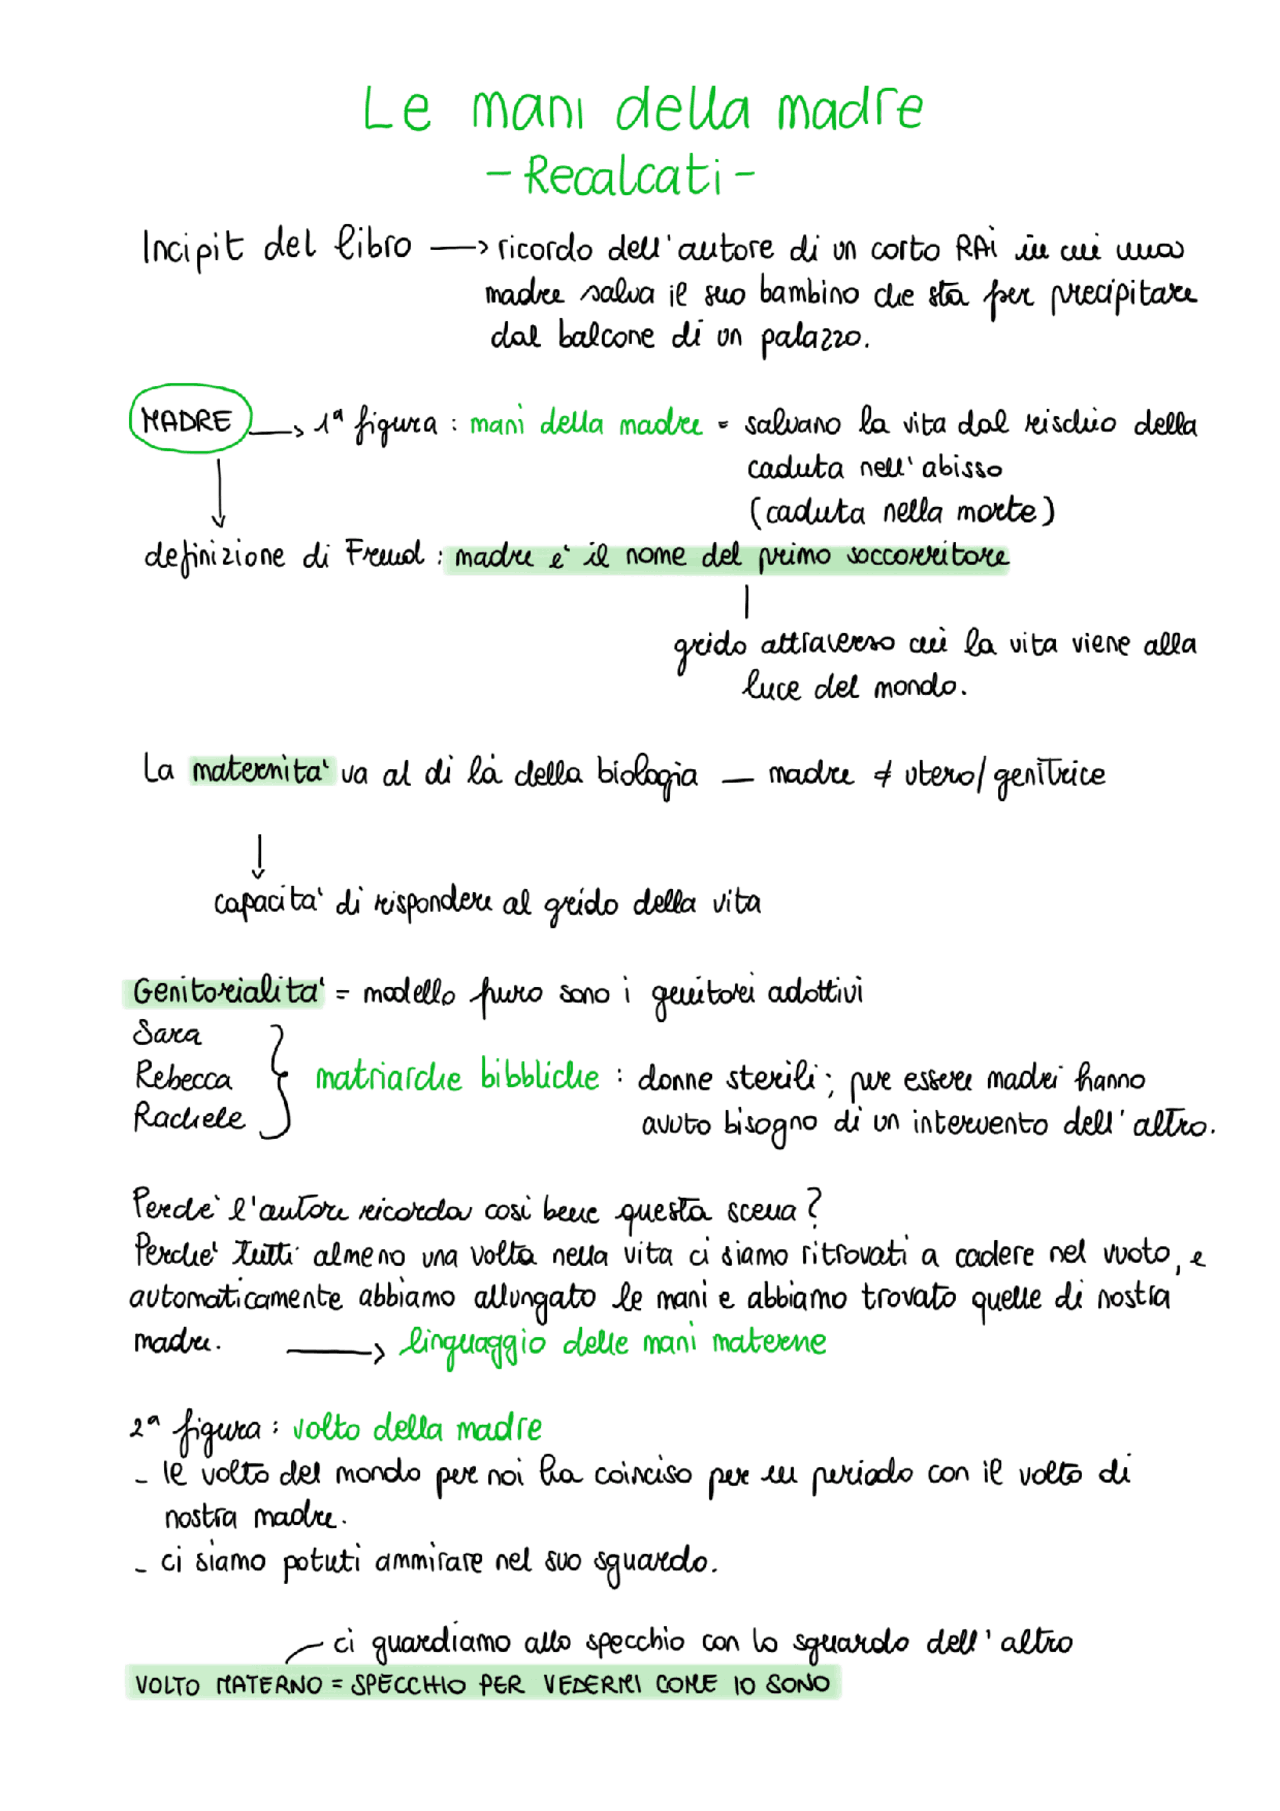 Le mani della madre
- Recalcati -
Incipit del libro → ricordo dell'autore di un corto RAI in cui una
madre salva il suo bambino che sta per precipitare
dal balcone di un palazzo.
MADRE → 1ª figura : mani della madre = salvano la vita dal rischio della
caduta nell'abisso
(caduta nella morte)
definizione di Freud : madre è il nome del primo soccorritore
grido attraverso cui la vita viene alla
luce del mondo.
La maternità va al di là della biologia — madre ≠ utero/genitrice
capacità di rispondere al grido della vita
Genitorialità = modello puro sono i genitori adottivi
Sara
Rebecca
Rachele
matriarche bibbliche : donne sterili; per essere madri hanno
avuto bisogno di un intervento dell'altro.
Perché l'autore ricorda così bene questa scena?
Perché tutti almeno una volta nella vita ci siamo ritrovati a cadere nel vuoto, e
automaticamente abbiamo allungato le mani e abbiamo trovato quelle di nostra
madre. → linguaggio delle mani materne
2ª figura : volto della madre
- il volto del mondo per noi ha coinciso per un periodo con il volto di
nostra madre.
- ci siamo potuti ammirare nel suo sguardo.
ci guardiamo allo specchio con lo sguardo dell'altro
VOLTO MATERNO = SPECCHIO PER VEDERMI COME IO SONO